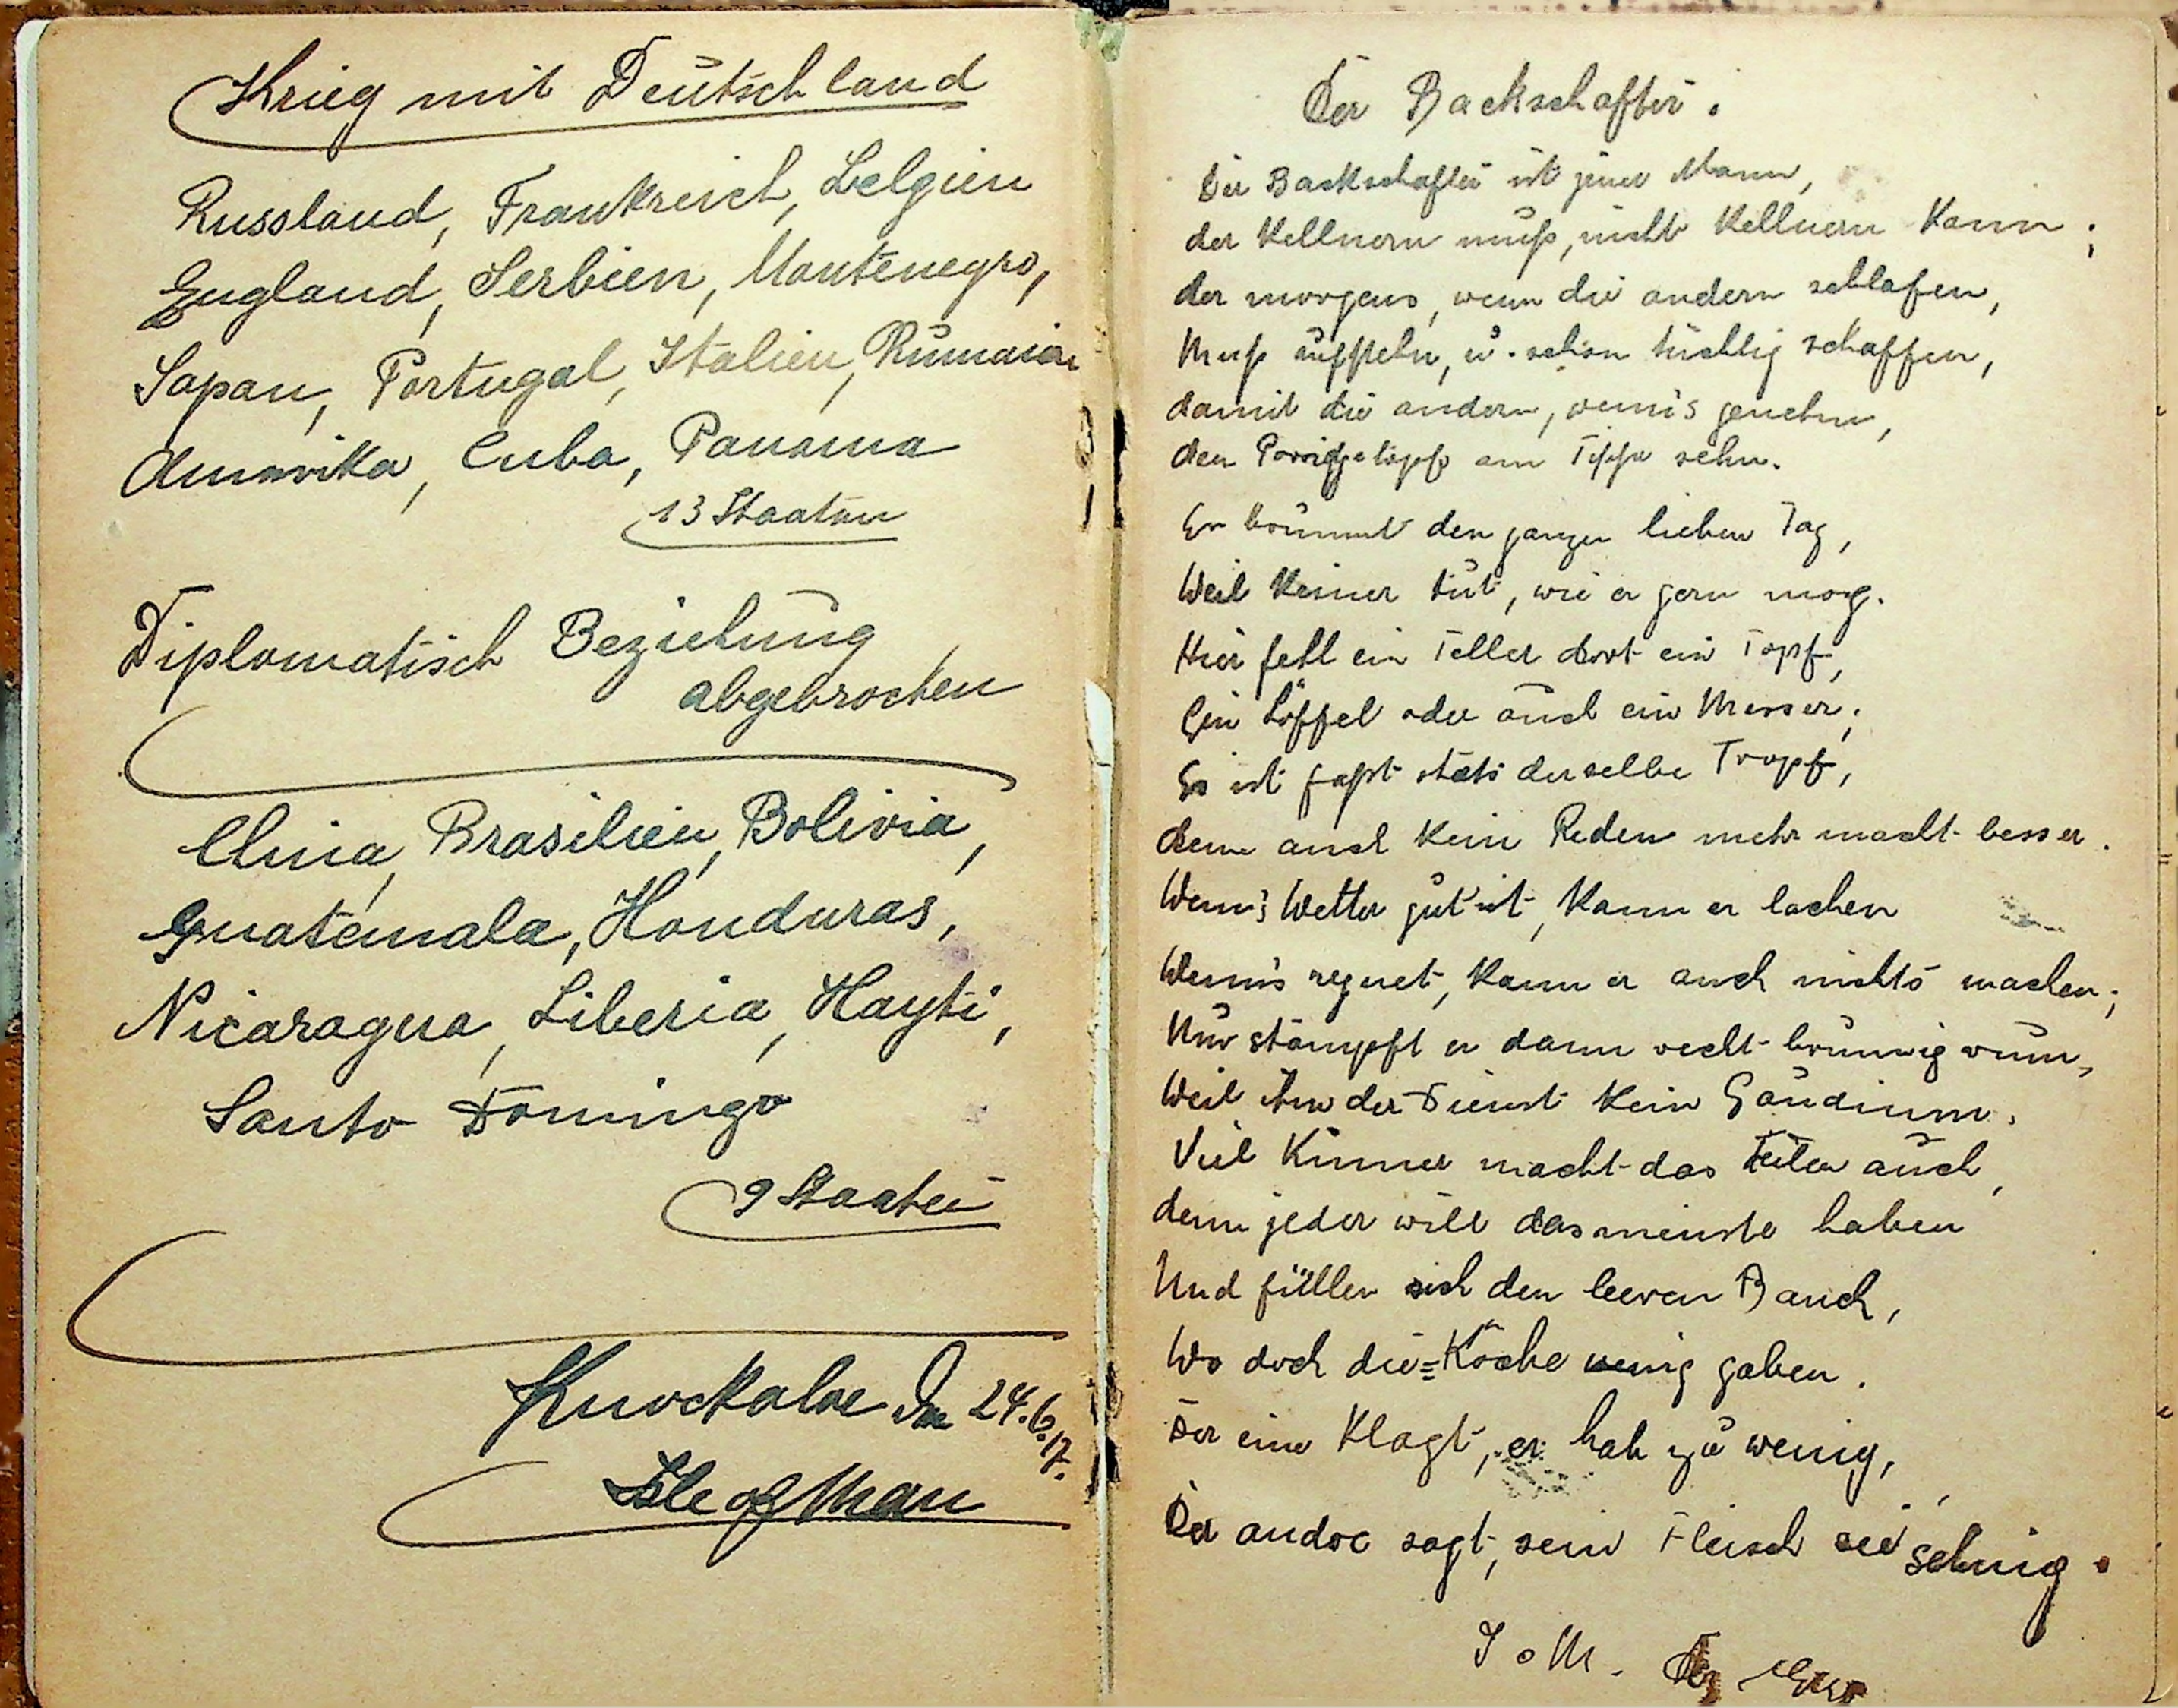 Krieg mit Deutschland
Russland, Frankreich, Belgien
England, Serbien, Montenegro,
Japan, Portugal, Italien, Rumänien
Amerika, Cuba, Panama
13 Staaten
Diplomatisch Beziehung
abgebrochen
China, Brasilien, Bolivia,
Guatemala, Honduras,
Nicaragua, Liberia, Hayti,
Santo Domingo
9 Staaten
Knockaloe den 24.6.17.
Isle of Man
Der Backschafter.
Der Backschafter ist jener Mann,
der Kellnern muß, nicht Kellnern kann;
der morgens, wenn die andern schlafen,
Muß aufstehn, u. schon tüchtig schaffen,
damit die andern, wenn's genehm,
den Porridgetopf am Tische sehn.
Er brummt den ganzen lieben Tag,
Weil Keiner tut, wie er gern mag.
Hier fehl ein Teller dort ein Topf,
Ein Löffel oder auch ein Messer;
Es ist faßt stets derselbe Tropf,
denn auch kein Reden mehr macht besser.
Wenn's Wetter gut ist, kann er lachen
Wenn's regnet, kann er auch nichts machen;
Nur stampft er dann recht brummig rum,
Weil ihm der Dienst kein Gaudium.
Viel Kummer macht das Teilen auch,
denn jeder will das meinste haben
Und füllen sich den leeren Bauch,
Wo doch die Köche wenig gaben.
Der eine klagt, er hab zu wenig,
Der andre sagt, sein Fleisch sei sehnig.
I o M.